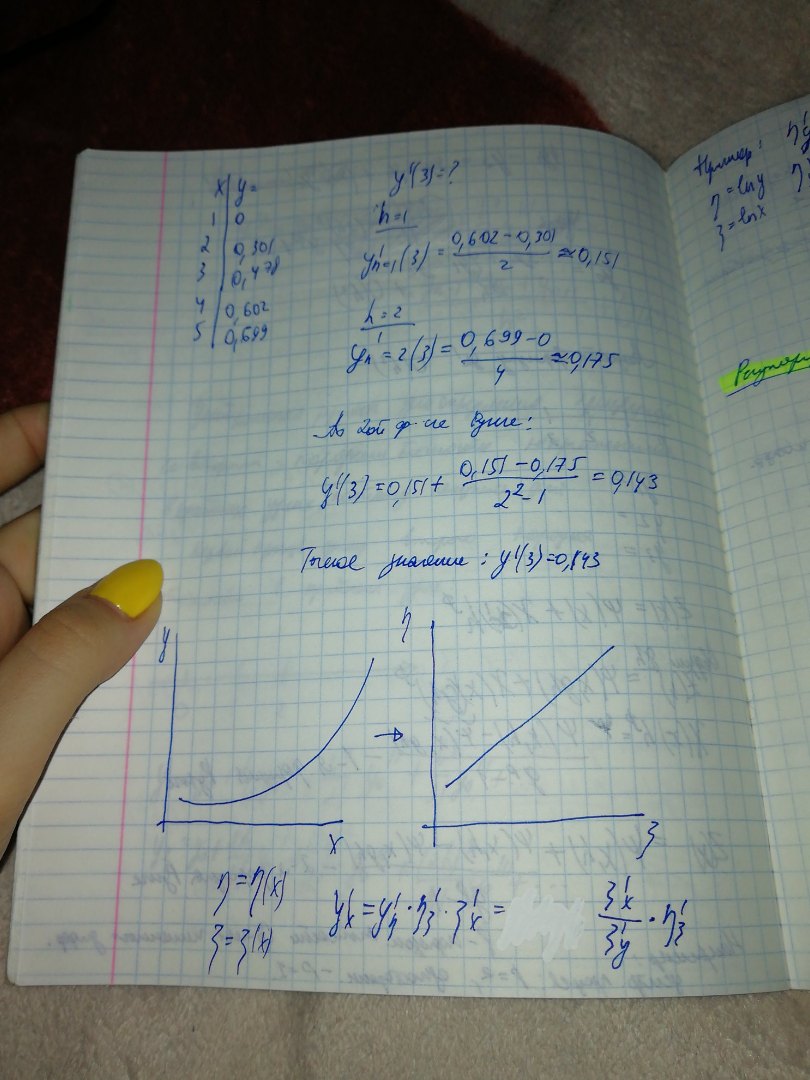 x | y=
1 | 0
2 | 0,301
3 | 0,478
4 | 0,602
5 | 0,699
y'(3)=?
h=1
y'h=1(3) = (0,602-0,301)/2 ≈ 0,151
h=2
y'h=2(3) = (0,699-0)/4 ≈ 0,175
По 2ой ф-ле Рунге:
y'(3)=0,151+ (0,151-0,175)/(2²-1) = 0,143
Точное значение: y'(3)=0,143
y
x
→
η
ξ
η=η(x)
ξ=ξ(x)
y'x = y'η · η'ξ · ξ'x =
ξ'x/ξ'y · η'ξ
Пример:
η = ln y
ξ = ln x